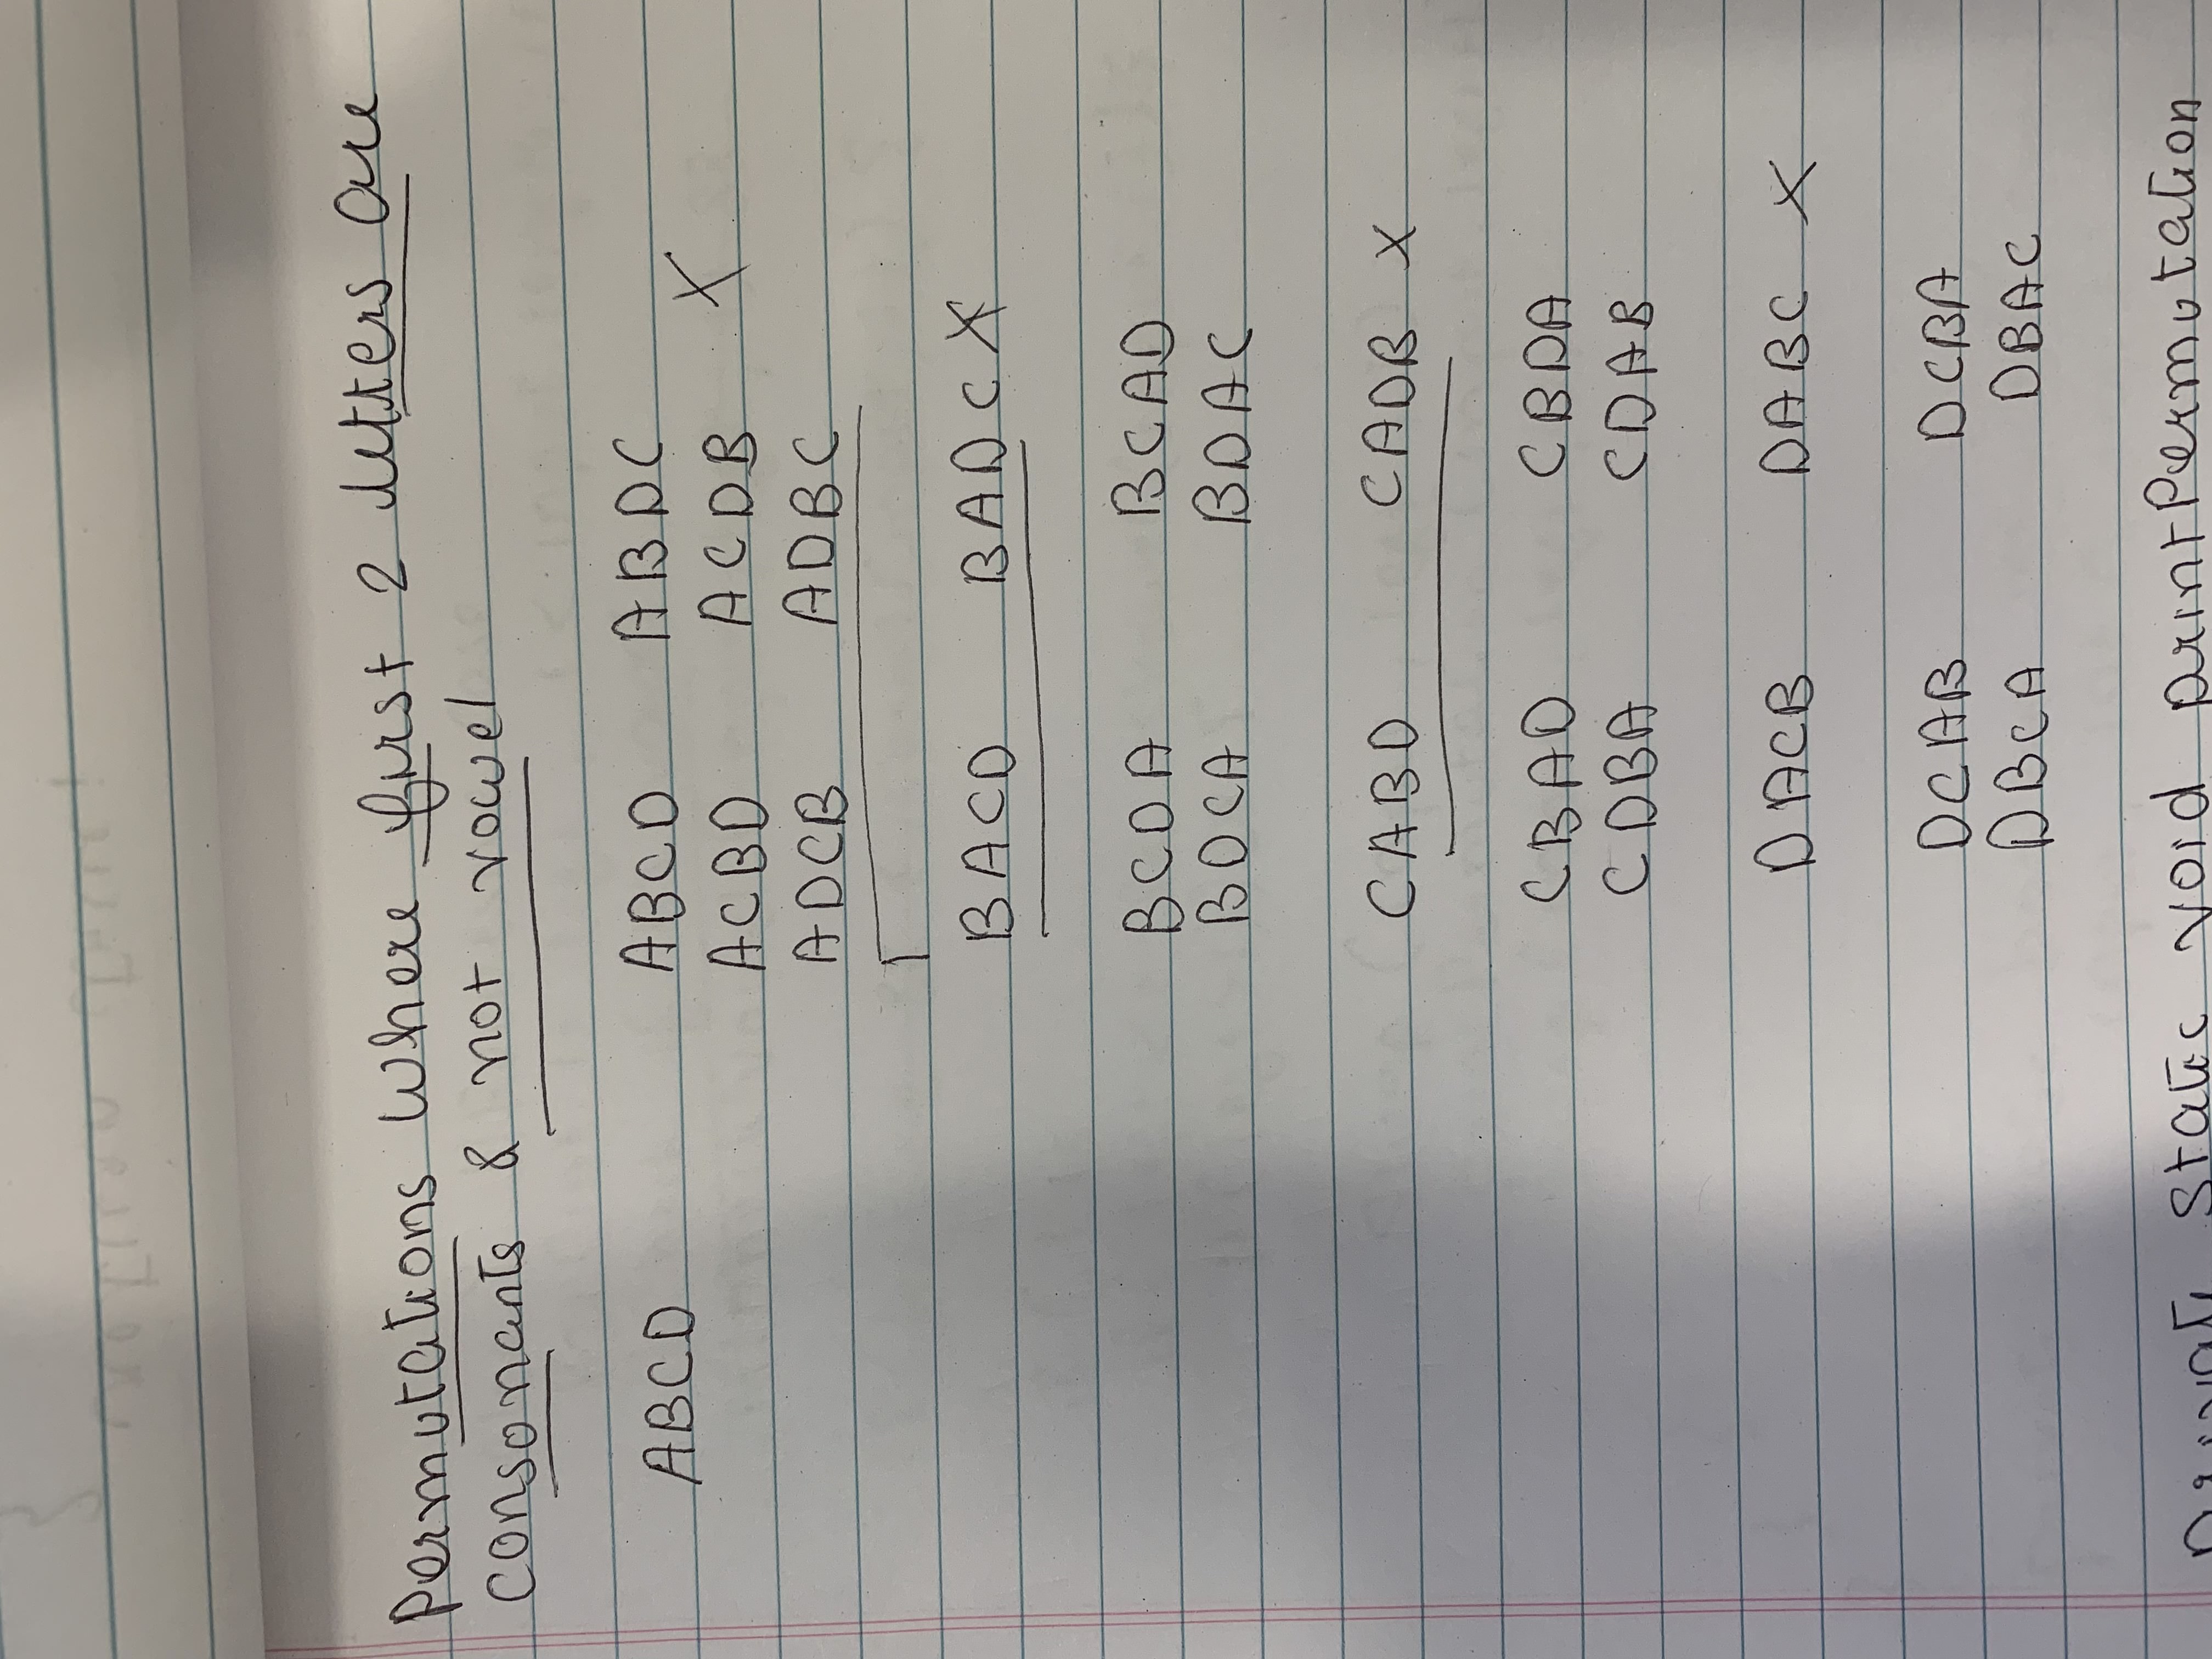 Permutations where first 2 letters are
consonants & not vowel
ABCD ABCD ABDC
ACBD ACDB X
ADCB ADBC
BACD BADC X
BCDA BCAD
BDCA BDAC
CABD CADB X
CBAD CBDA
CDBA CDAB
DACB DABC X
DCAB DCBA
DBCA DBAC
Private static void printPermutation